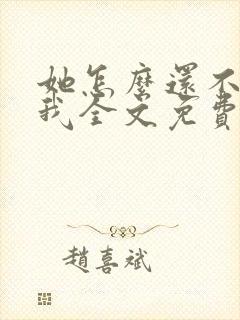 她怎麼還不
我全文免費
趙喜斌